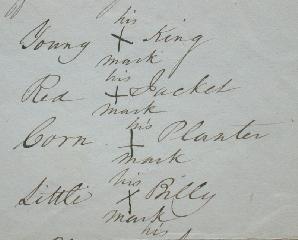 his
Young X King
mark
his
Red X Jacket
mark
his
Corn X Planter
mark
his
Little X Billy
mark
his